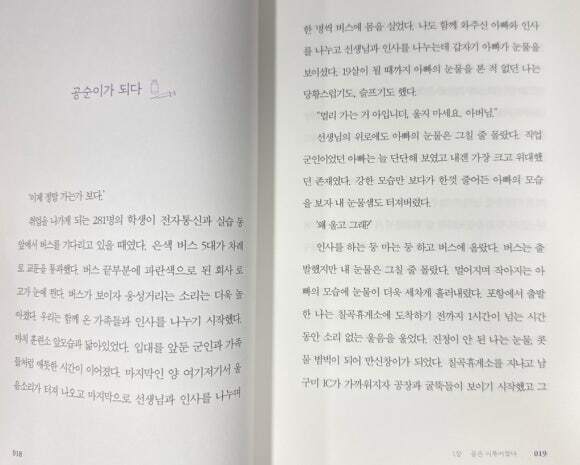 공순이가 되다
'이제 정말 가는가 보다.'
취업을 나가게 되는 281명의 학생이 전자통신과 실습 동
앞에서 버스를 기다리고 있을 때였다. 은색 버스 5대가 차례
로 교문을 통과했다. 버스 끝부분에 파란색으로 된 회사 로
고가 눈에 띈다. 버스가 보이자 웅성거리는 소리는 더욱 높
아졌다. 우리는 함께 온 가족들과 인사를 나누기 시작했다.
마치 훈련소 앞모습과 닮아있었다. 입대를 앞둔 군인과 가족
들처럼 애틋한 시간이 이어졌다. 마지막인 양 여기저기서 울
음소리가 터져 나오고 마지막으로 선생님과 인사를 나누며
018
한 명씩 버스에 몸을 실었다. 나도 함께 와주신 아빠와 인사
를 나누고 선생님과 인사를 나누는데 갑자기 아빠가 눈물을
보이셨다. 19살이 될 때까지 아빠의 눈물을 본 적 없던 나는
당황스럽기도, 슬프기도 했다.
"멀리 가는 거 아입니더, 울지 마세요, 아버님."
선생님의 위로에도 아빠의 눈물은 그칠 줄 몰랐다. 직업
군인이었던 아빠는 늘 단단해 보였고 내겐 가장 크고 위대했
던 존재였다. 강한 모습만 보다가 한껏 줄어든 아빠의 모습
을 보자 내 눈물샘도 터져버렸다.
'왜 울고 그래?'
인사를 하는 둥 마는 둥 하고 버스에 올랐다. 버스는 출
발했지만 내 눈물은 그칠 줄 몰랐다. 멀어지며 작아지는 아
빠의 모습에 눈물이 더욱 세차게 흘러내렸다. 포항에서 출발
한 나는 칠곡휴게소에 도착하기 전까지 1시간이 넘는 시간
동안 소리 없는 울음을 울었다. 진정이 안 된 나는 눈물, 콧
물 범벅이 되어 만신창이가 되었다. 칠곡휴게소를 지나고 남
구미 IC가 가까워지자 공장과 굴뚝들이 보이기 시작했고 그
1장 꿈은 이루어졌다 019